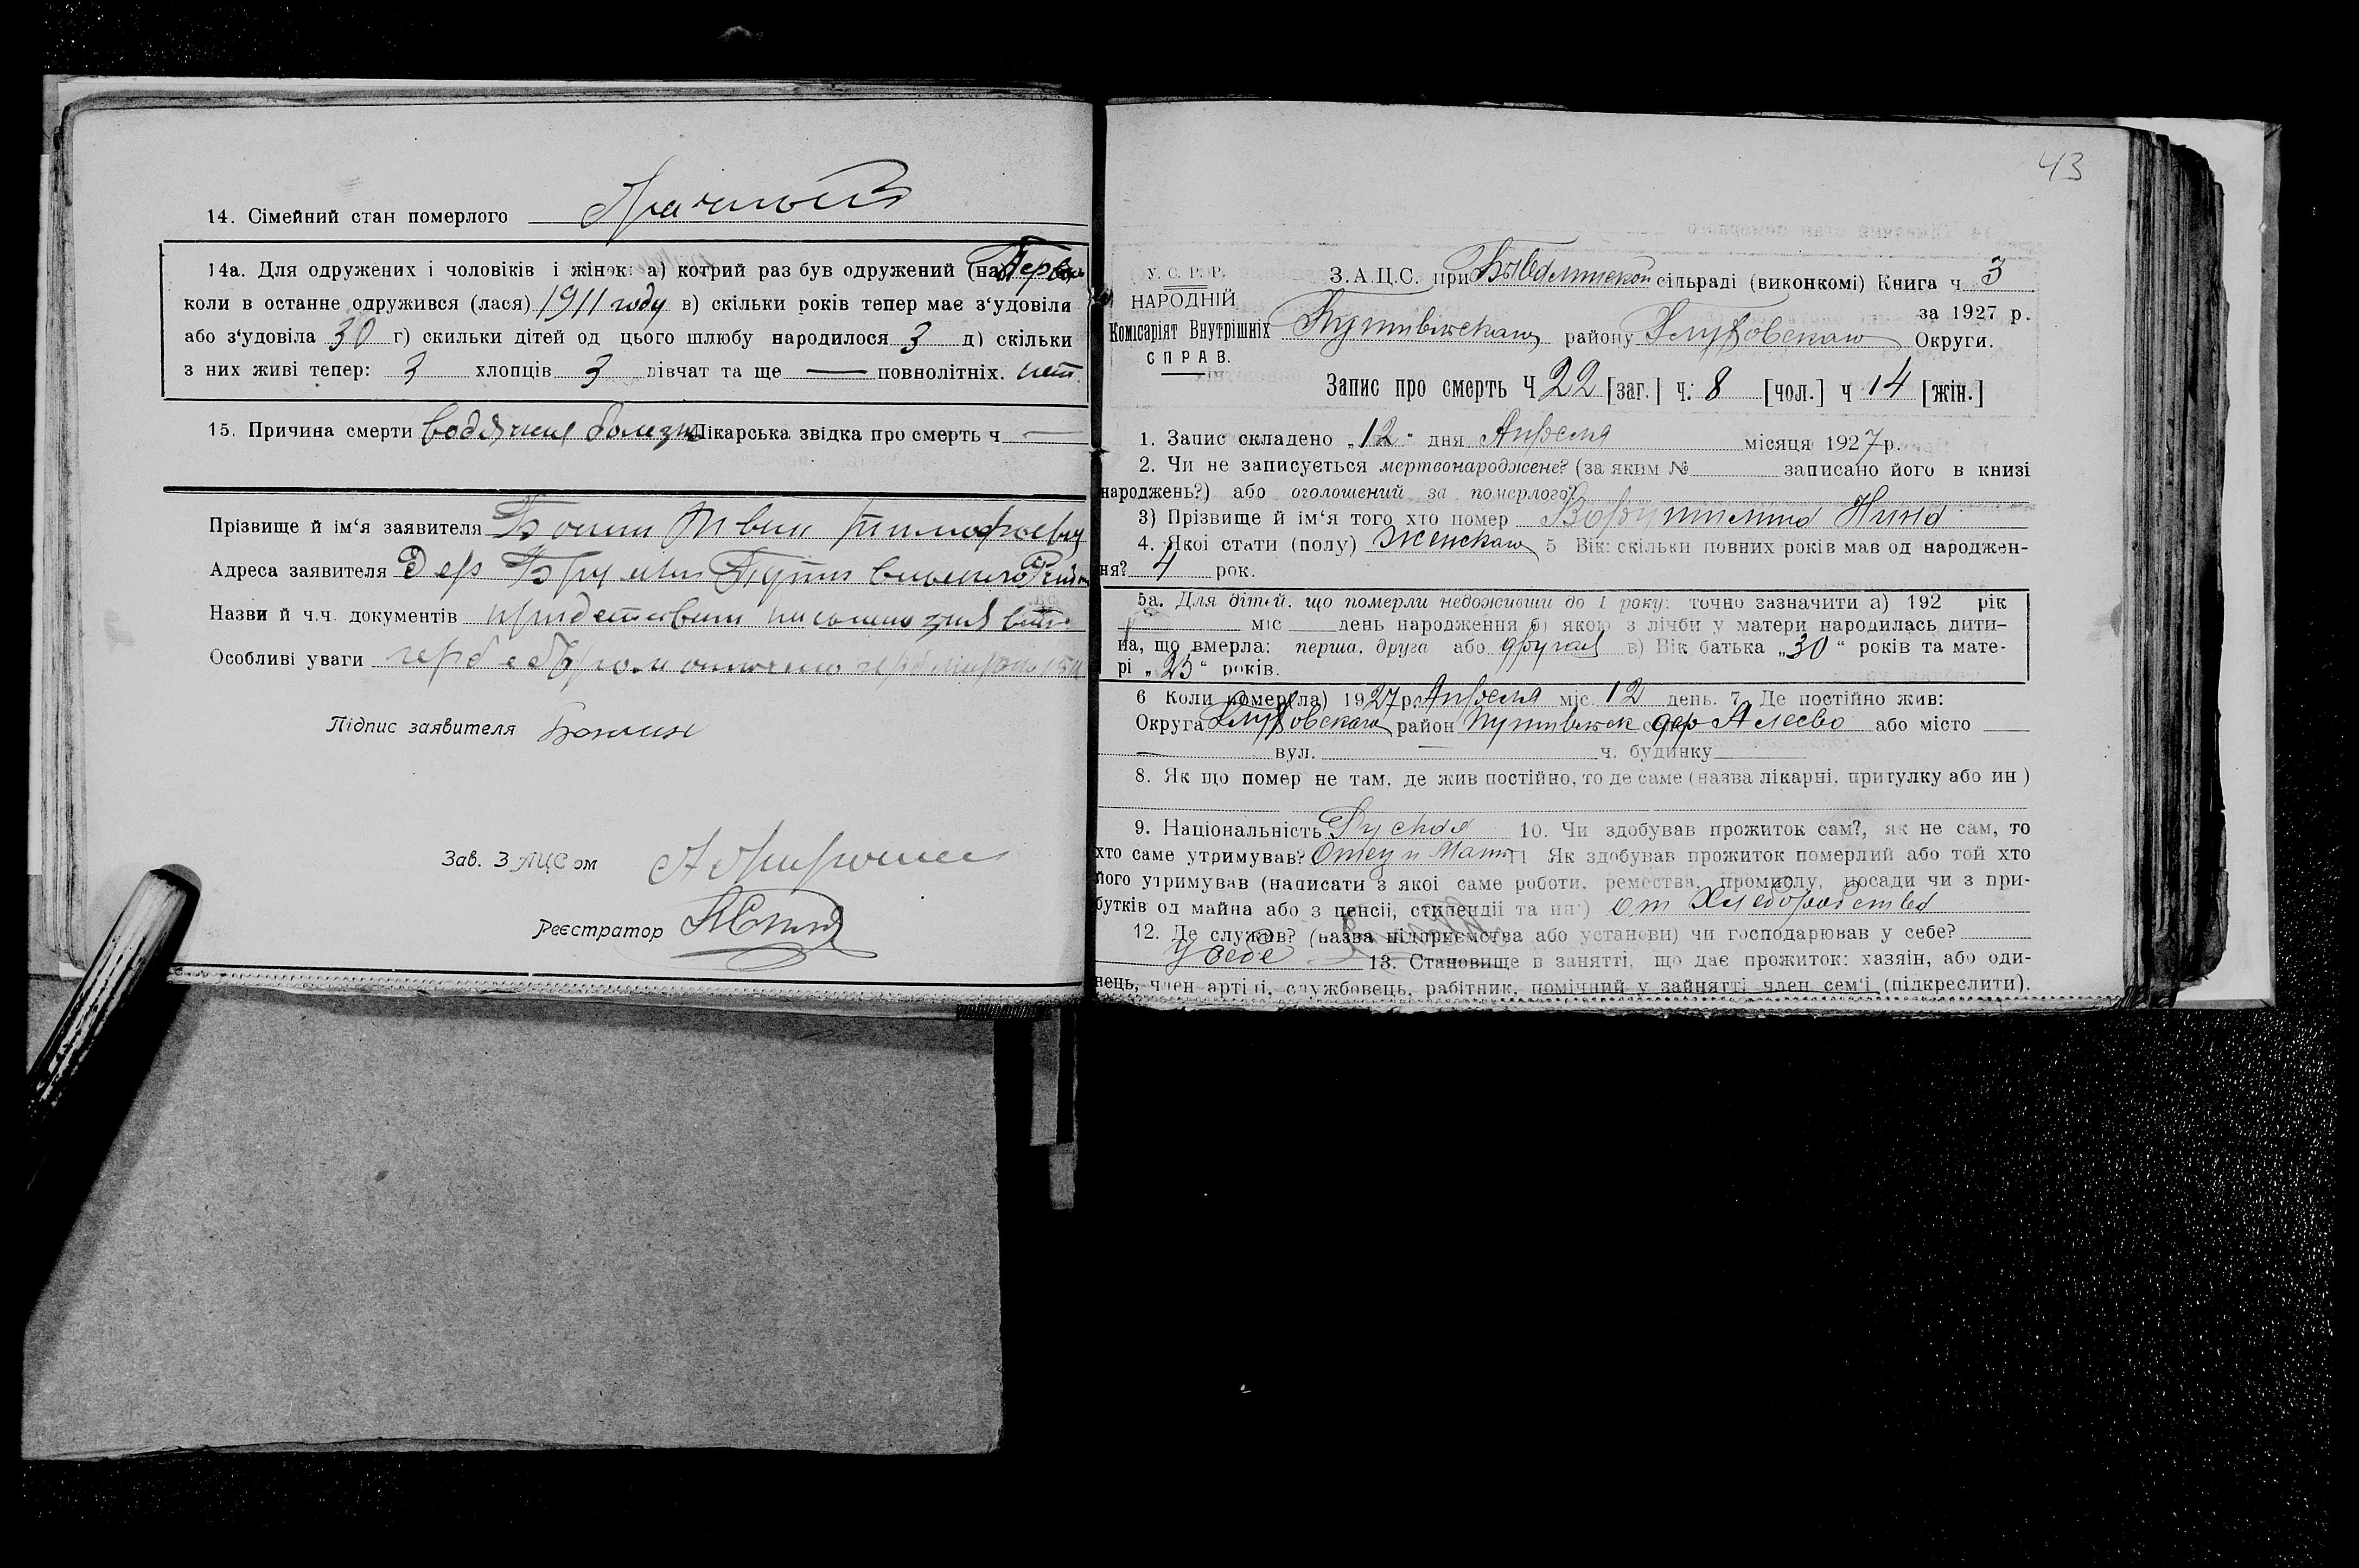 14. Сімейний стан померлого
14а. Для одружених і чоловіків і жінок: а) котрий раз був одружений (на Первы
коли в останне одружився (лася) 1911 году в) скільки років тепер має з‘удовіля
або з‘удовіла 30 г) скильки дітей од цього шлюбу народилося 3 д) скільки
з них живі тепер: 3 хлопців 3 дівчат та ще — повнолітніх. нет
15. Причина смерти водяная болезнь Лікарська звідка про смерть ч —
Прізвище й ім‘я заявителя Тимофеевич
Адреса заявителя Дер
Назви й ч.ч. документів
Особливі уваги
Підпис заявителя
Зав. ЗАЦСом
Реєстратор
43
У. С. Р. Р.
НАРОДНІЙ
Комісаріят Внутрішніх
СПРАВ.
З.А.Ц.С. при сільраді (виконкомі) Книга ч 3
за 1927 р.
Путивльскаго району Глуховскаго Округи.
Запис про смерть Ч 22 [заг.] ч. 8 [чол.] ч 14 [жін.]
1. Запис складено „12“ дня Апреля місяця 1927 р.
2. Чи не записується мертвонароджене? (за яким № записано його в книзі
народжень?) або оголошений за померлого?
3) Прізвище й ім‘я того хто помер Нина
4. Якої стати (полу) Женскаго 5 Вік: скільки повних років мав од народжен-
ня? 4 рок.
5а. Для дітей, що померли недоживши до 1 року: точно зазначити а) 192 рік
міс день народження б) якою з лічби у матери народилась дити-
на, що вмерла: перша, друга або другая в) Вік батька „30“ років та мате-
рі „25“ років.
6 Коли помер(ла) 1927 р. Апреля міс. 12 день. 7. Де постійно жив:
Округа Глуховскаго район Путивльск дер Алесво або місто —
— вул. — ч. будинку
8. Як що помер не там, де жив постійно, то де саме (назва лікарні, притулку або ин )
9. Національність Руская 10. Чи здобував прожиток сам?, як не сам, то
хто саме утримував? Отец и Мать 11 Як здобував прожиток померлий або той хто
його утримував (написати з якої саме роботи, ремества, промислу, посади чи з при-
бутків од майна або з пенсії, стипендії та ин ) от Хлебородства
12. Де служив? (назва підприємства або установи) чи господарював у себе?
у себе 13. Становище в занятті, що дає прожиток: хазяін, або оди-
нець, член артілі, службовець, рабітник, помічний у зайнятті член сем‘ї (підкреслити).